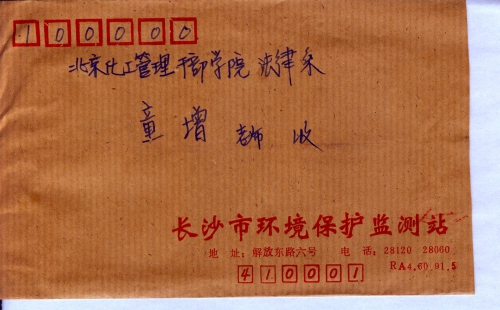 100000
北京化工管理干部学院 法律系
童增 老师 收
长沙市环境保护监测站
地 址：解放东路六号 电 话：28120 28060
410001
RA4.60 91.5